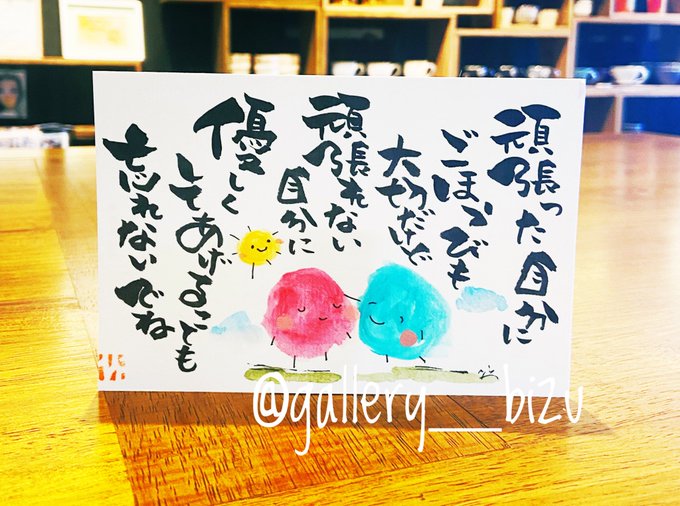 頑張った自分に
ごほうびも
大切だけど
頑張れない
自分に
優しく
してあげることも
忘れないでね
@gallery__bizu